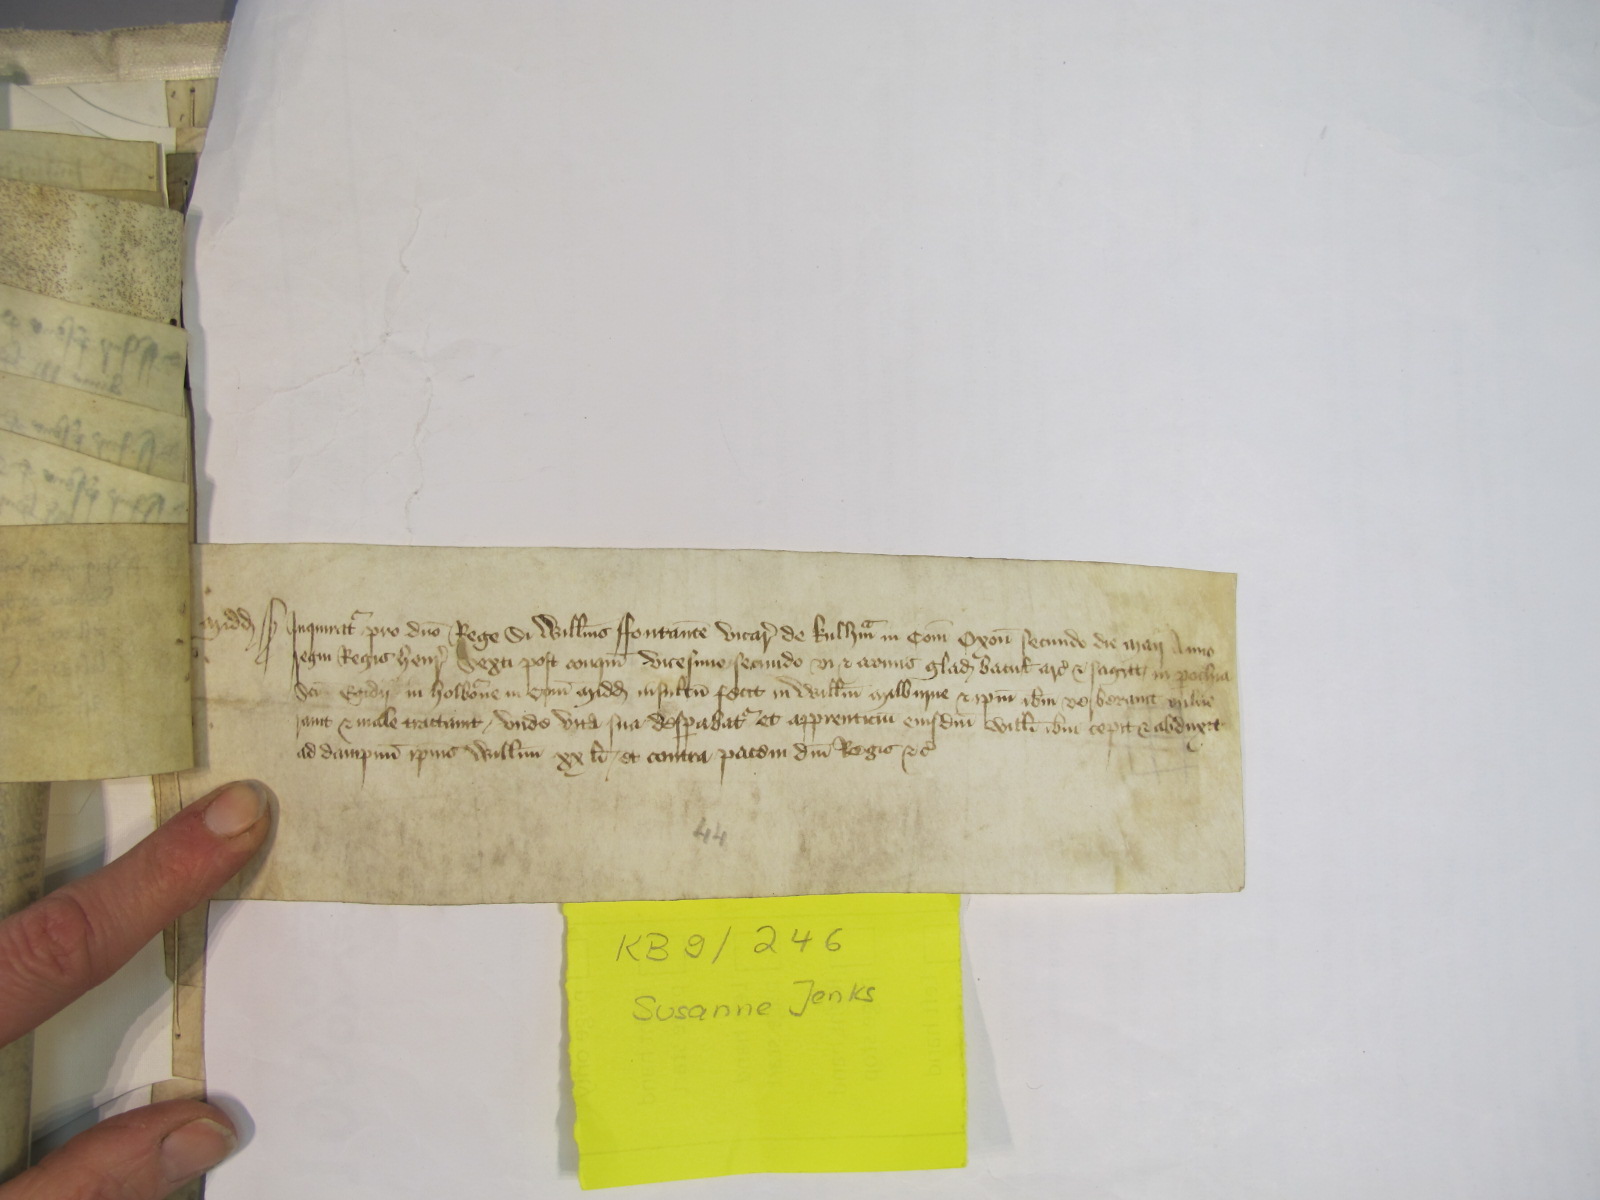 Midd ss Inquiratr pro dno Rege Si Willms ffontance vicar de kulhm in Com Oxon secundo die maij Anno
regni Regis henr Sexti post conqm vicesimo secundo vi & armis glad bacul arc & sagitt in pochia
Sci Egidij in holborne in com Midd insultu fecit in Willm Milburne & ipm ibm verberavit vulne
ravit & male tractavit unde vita sua despabatr et apprenticiu eiusdm Willi ibm cepit & abduxit
ad dampnu ipius Willmi xx li et contra pacem dni Regis &c
44
KB 9/246
Susanne Jenks